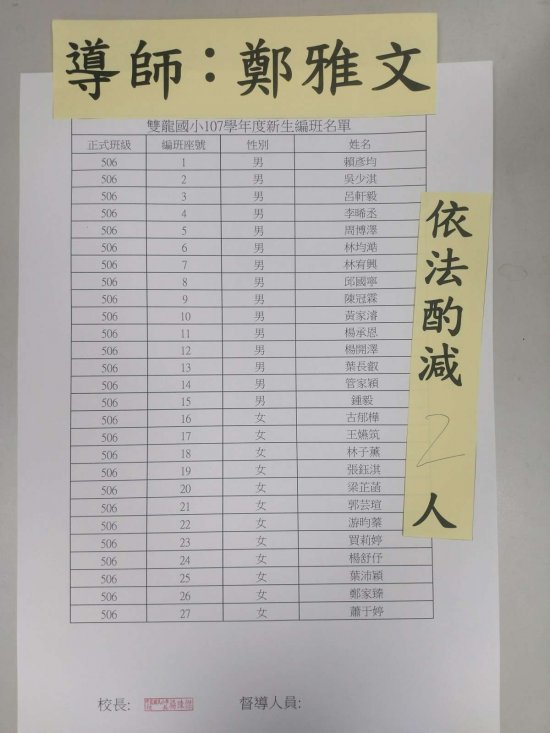 導師：鄭雅文
雙龍國小107學年度新生編班名單
正式班級 編班座號 性別 姓名
506 1 男 賴彥均
506 2 男 吳少淇
506 3 男 呂軒毅
506 4 男 李晞丞
506 5 男 周博澤
506 6 男 林均澔
506 7 男 林宥興
506 8 男 邱國寧
506 9 男 陳冠霖
506 10 男 黃家濬
506 11 男 楊承恩
506 12 男 楊開澤
506 13 男 葉長叡
506 14 男 管家穎
506 15 男 鍾毅
506 16 女 古郁樺
506 17 女 王嬿筑
506 18 女 林子薰
506 19 女 張鈺淇
506 20 女 梁芷菡
506 21 女 郭芸瑄
506 22 女 游昀蓁
506 23 女 買莉婷
506 24 女 楊舒伃
506 25 女 葉沛穎
506 26 女 鄭家臻
506 27 女 蕭于婷
依法酌減2人
校長: 督導人員: